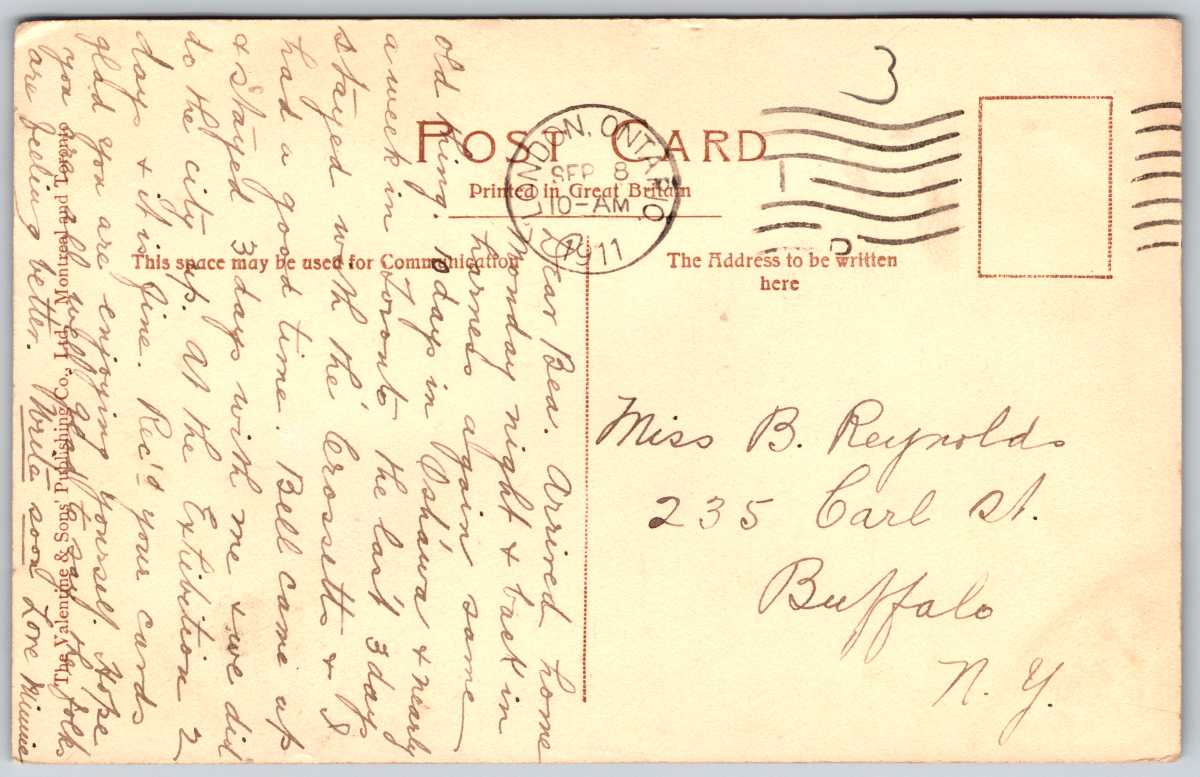 3
POST CARD
Printed in Great Britain
LONDON, ONTARIO
SEP 8
10-AM
1911
This space may be used for Communication
The Address to be written
here
Dear Bea. Arrived home
Monday night & back in
harness again same
old thing. 10 days in Oshawa & nearly
a week in Toronto the last 3 days
stayed with the Crossetts &
had a good time. Bell came up
& stayed 3 days with me & we did
do the city up. At the Exhibition 2
days & it is fine. Rec'd your cards
glad you are enjoying yourself. Hope
you are all well glad to say the folks
are feeling better. Write soon Love Minnie
Miss B. Reynolds
235 Carl St.
Buffalo
N. Y.
The Valentine & Sons Publishing Co., Ltd., Montreal and Toronto